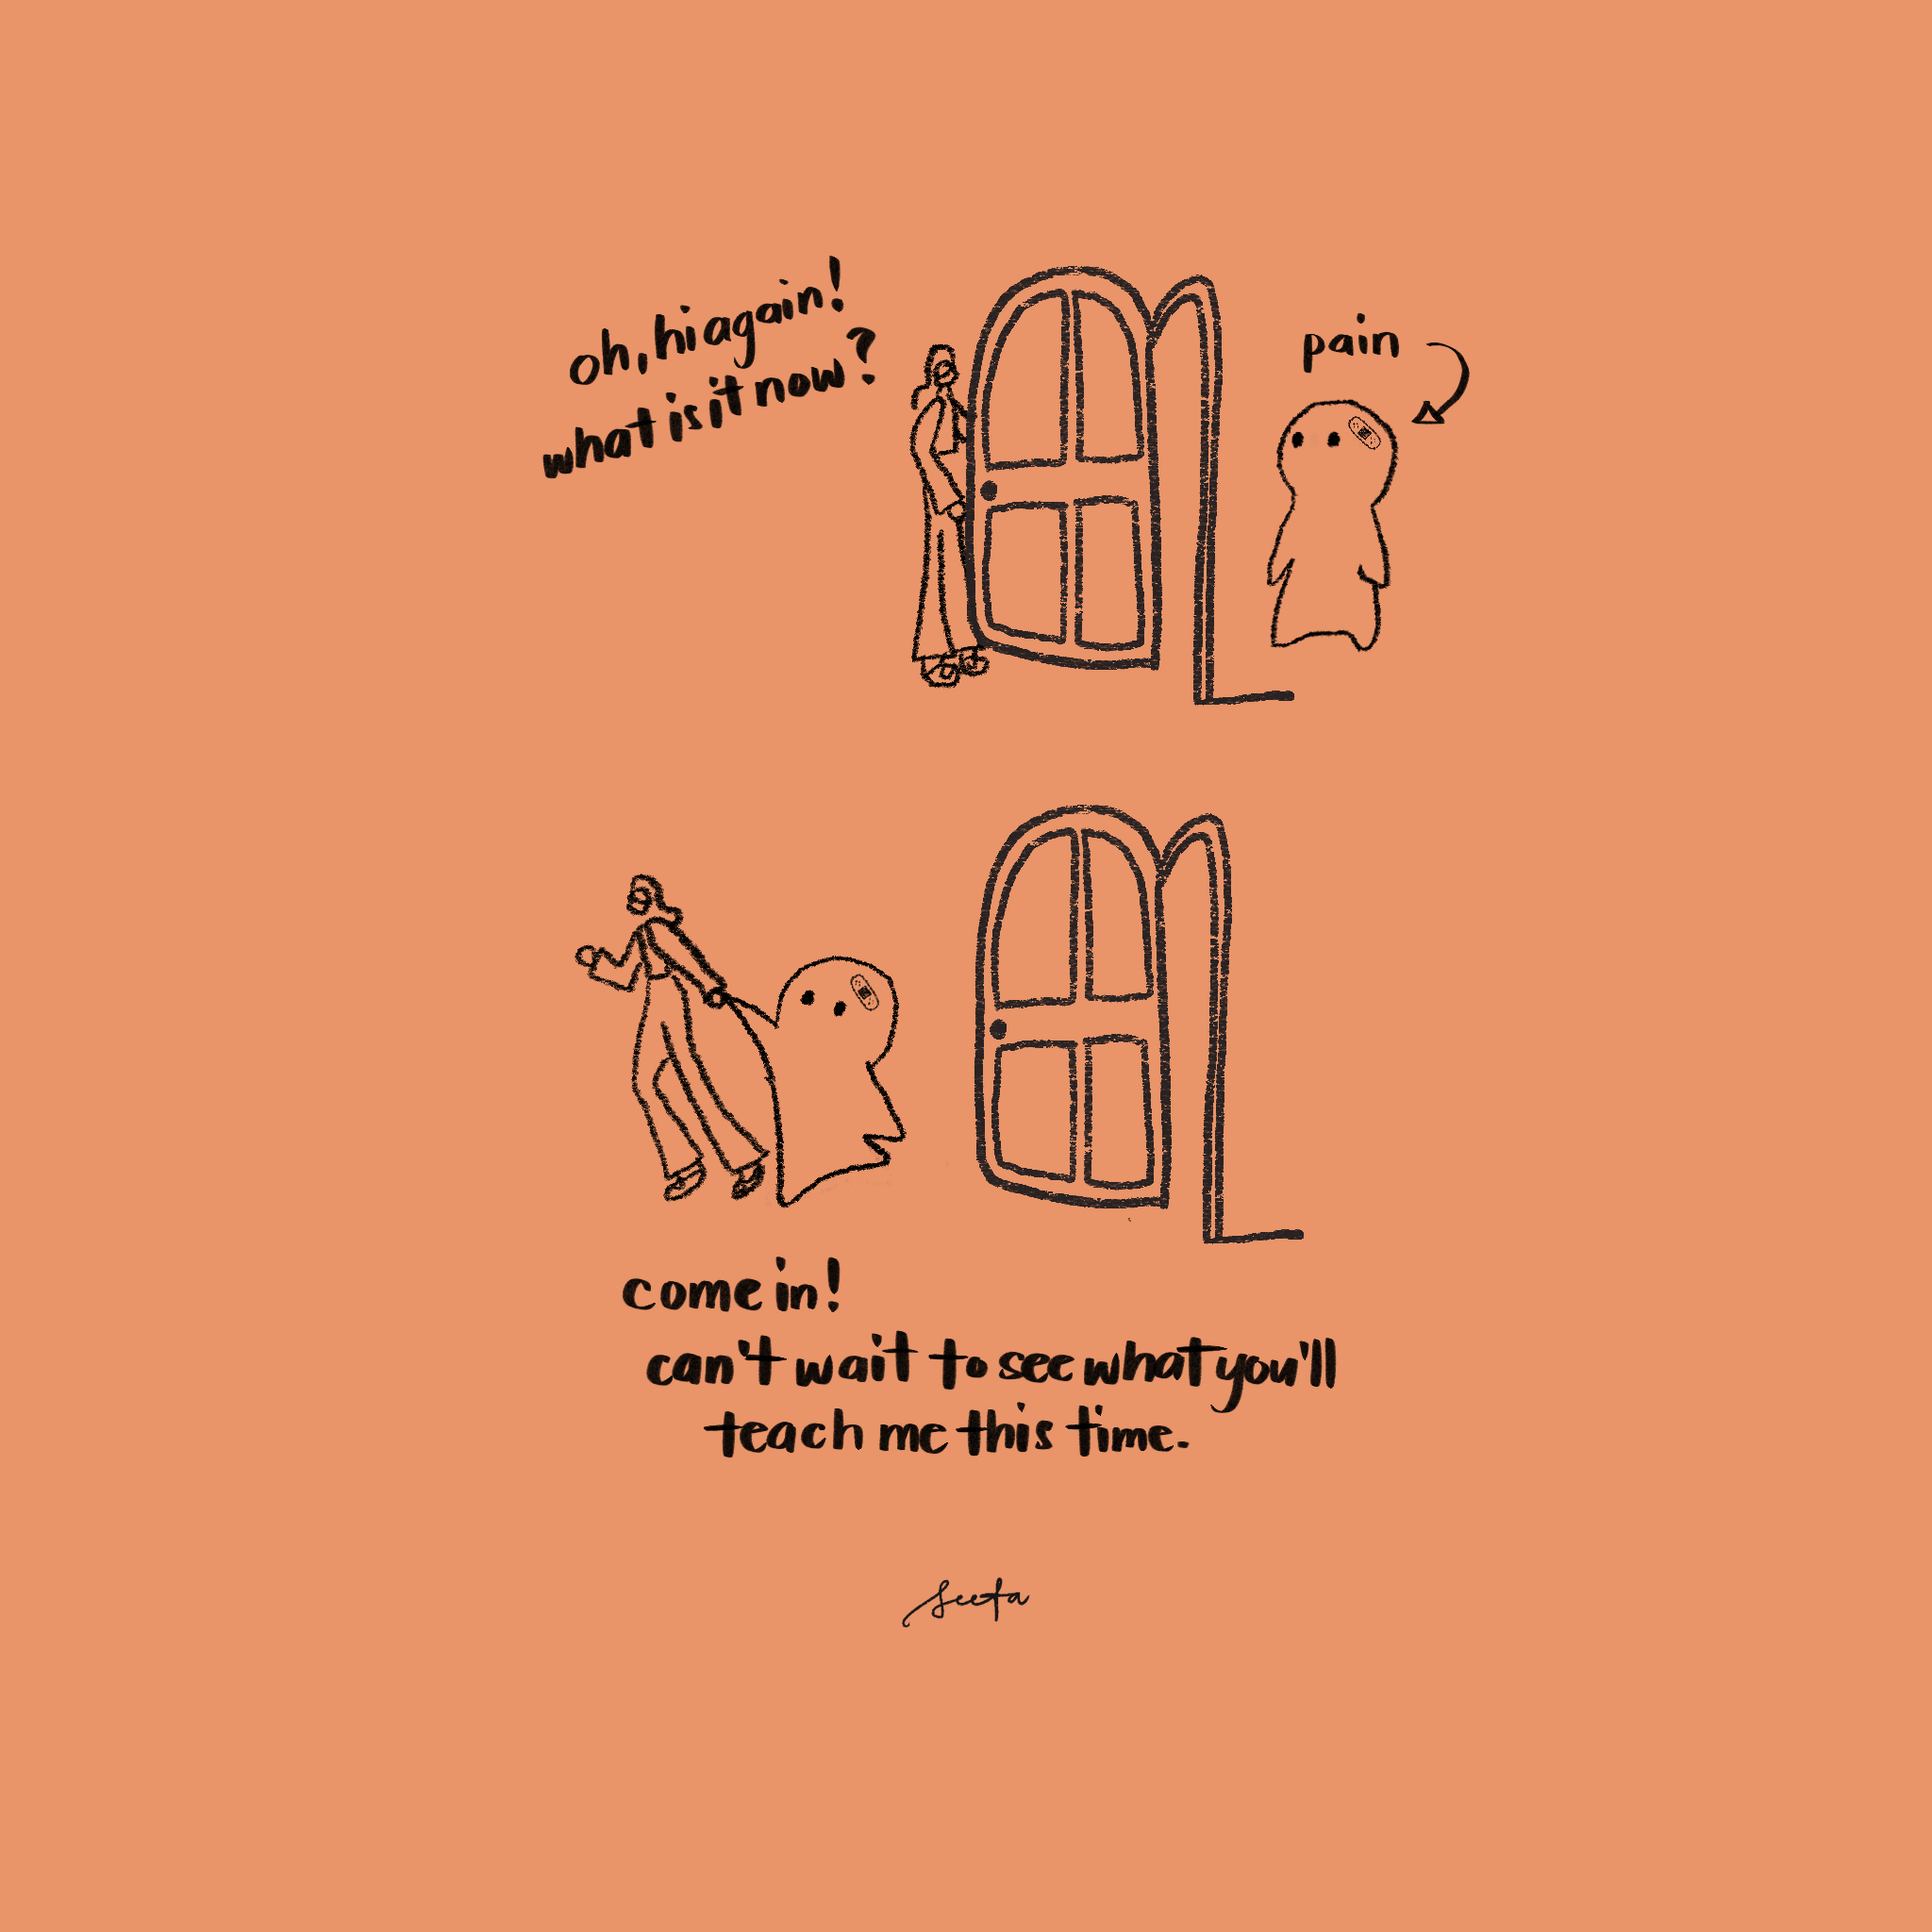 oh, hi again!
what is it now?
pain
come in!
can't wait to see what you'll
teach me this time.
seeta